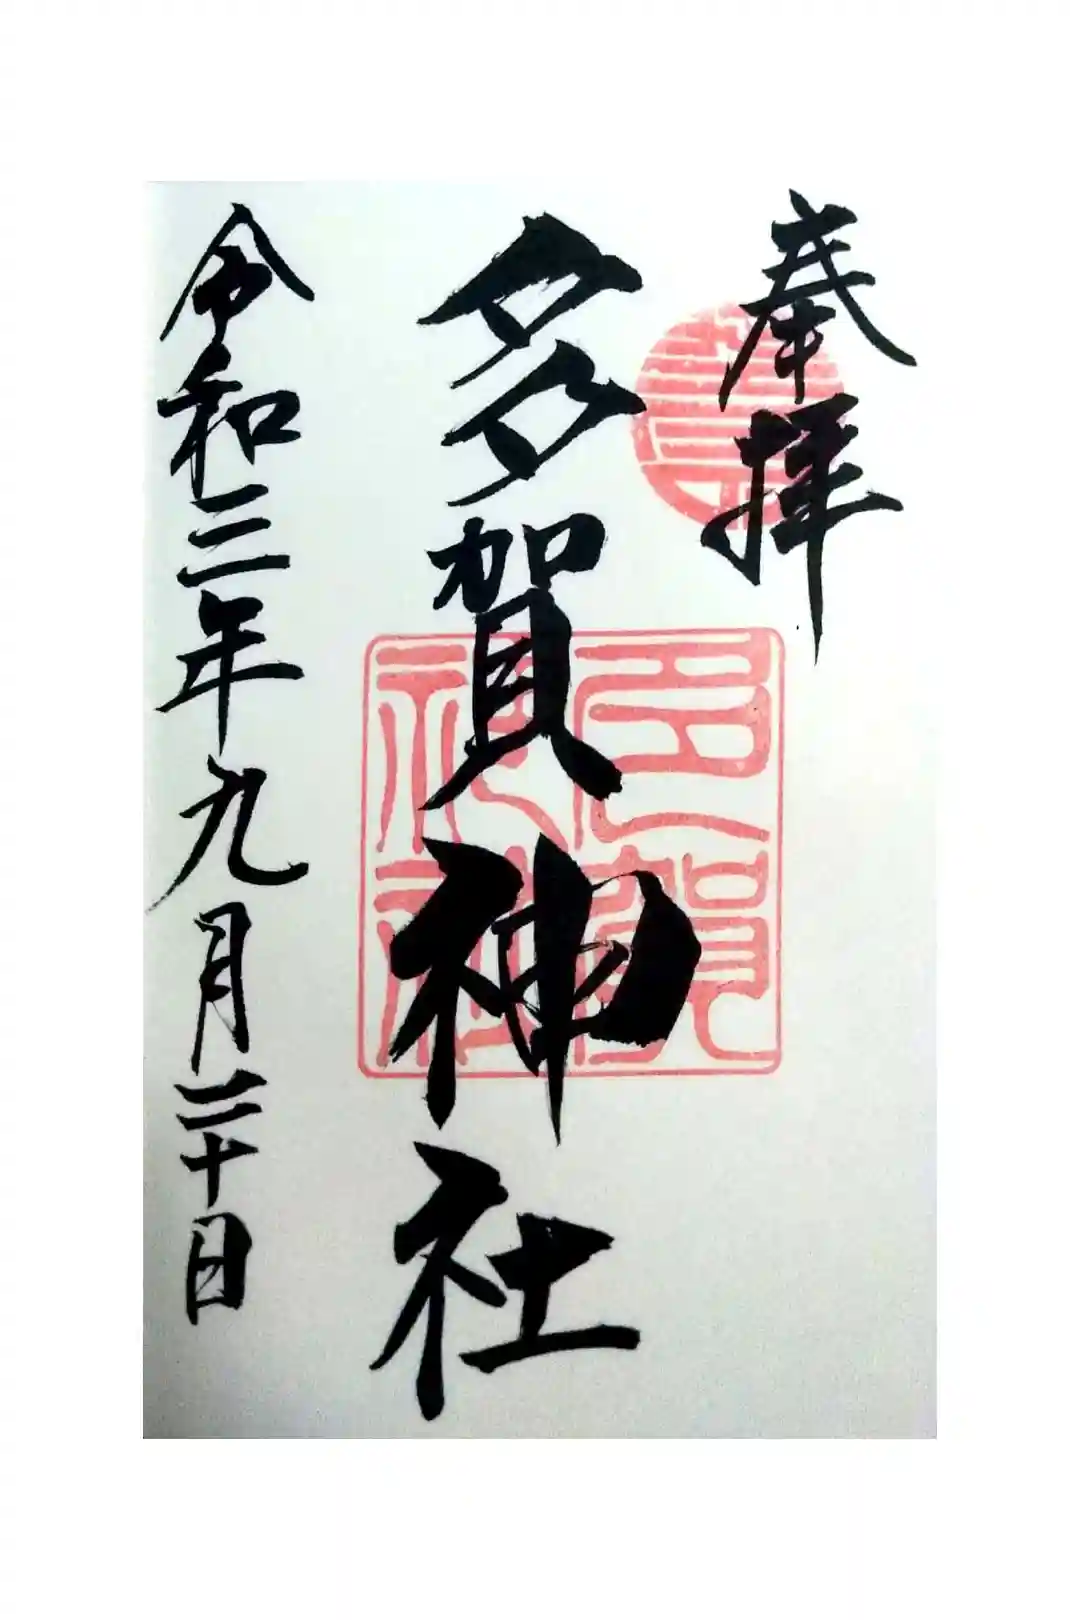 奉拝
多賀神社
令和三年九月二十日
多賀神社